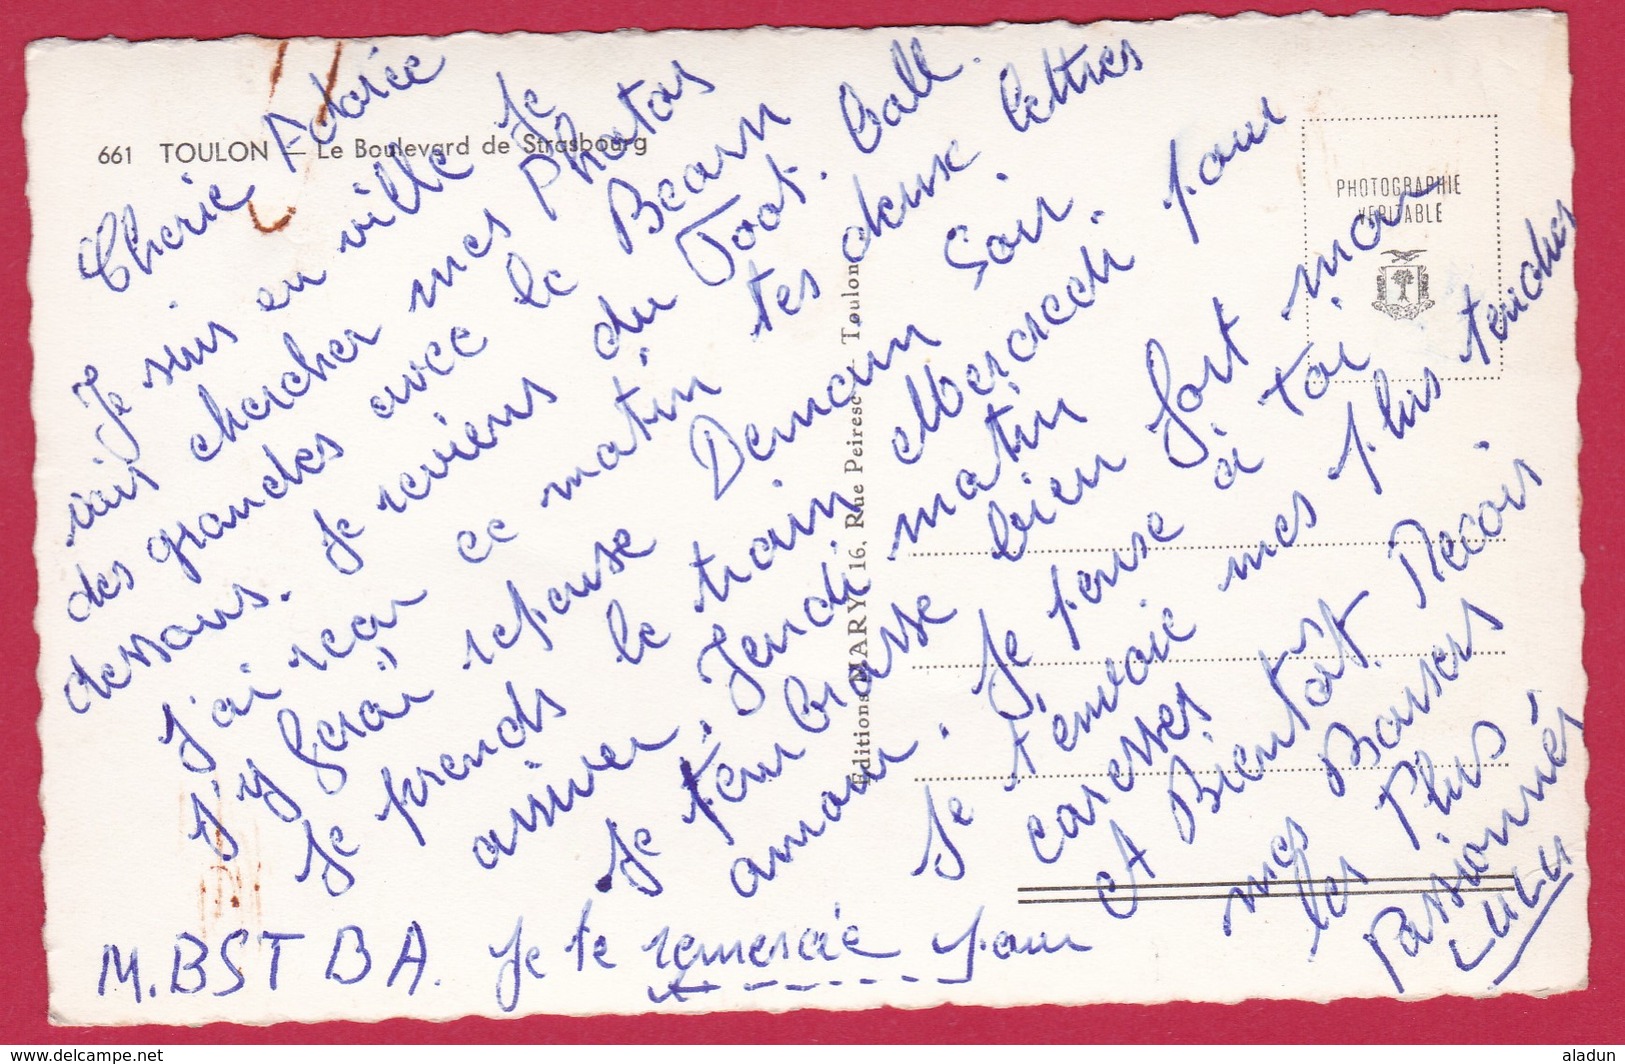 661 TOULON — Le Boulevard de Strasbourg
PHOTOGRAPHIE
VERITABLE
Editions MARY, 16, Rue Peiresc - Toulon
Cherie Adorée
Je suis en ville Je
vais chercher mes Photos
des grandes avec le Bearn
dessous. Je reviens du Foot. ball.
J'ai reçu ce matin tes deuse lettres
J'y ferai reponse Demain Soir.
Je prends le train Mercredi pour
arriver Jendi matin
Je t'embrasse bien fort mon
amour. Je pense à toi
Je t'envoie mes plus tendres
caresses
A Bientôt. Recois
mes Baisers
les Plus
Passionnés
LULU
M.BST BA. Je te remercie pour
www.delcampe.net
aladun